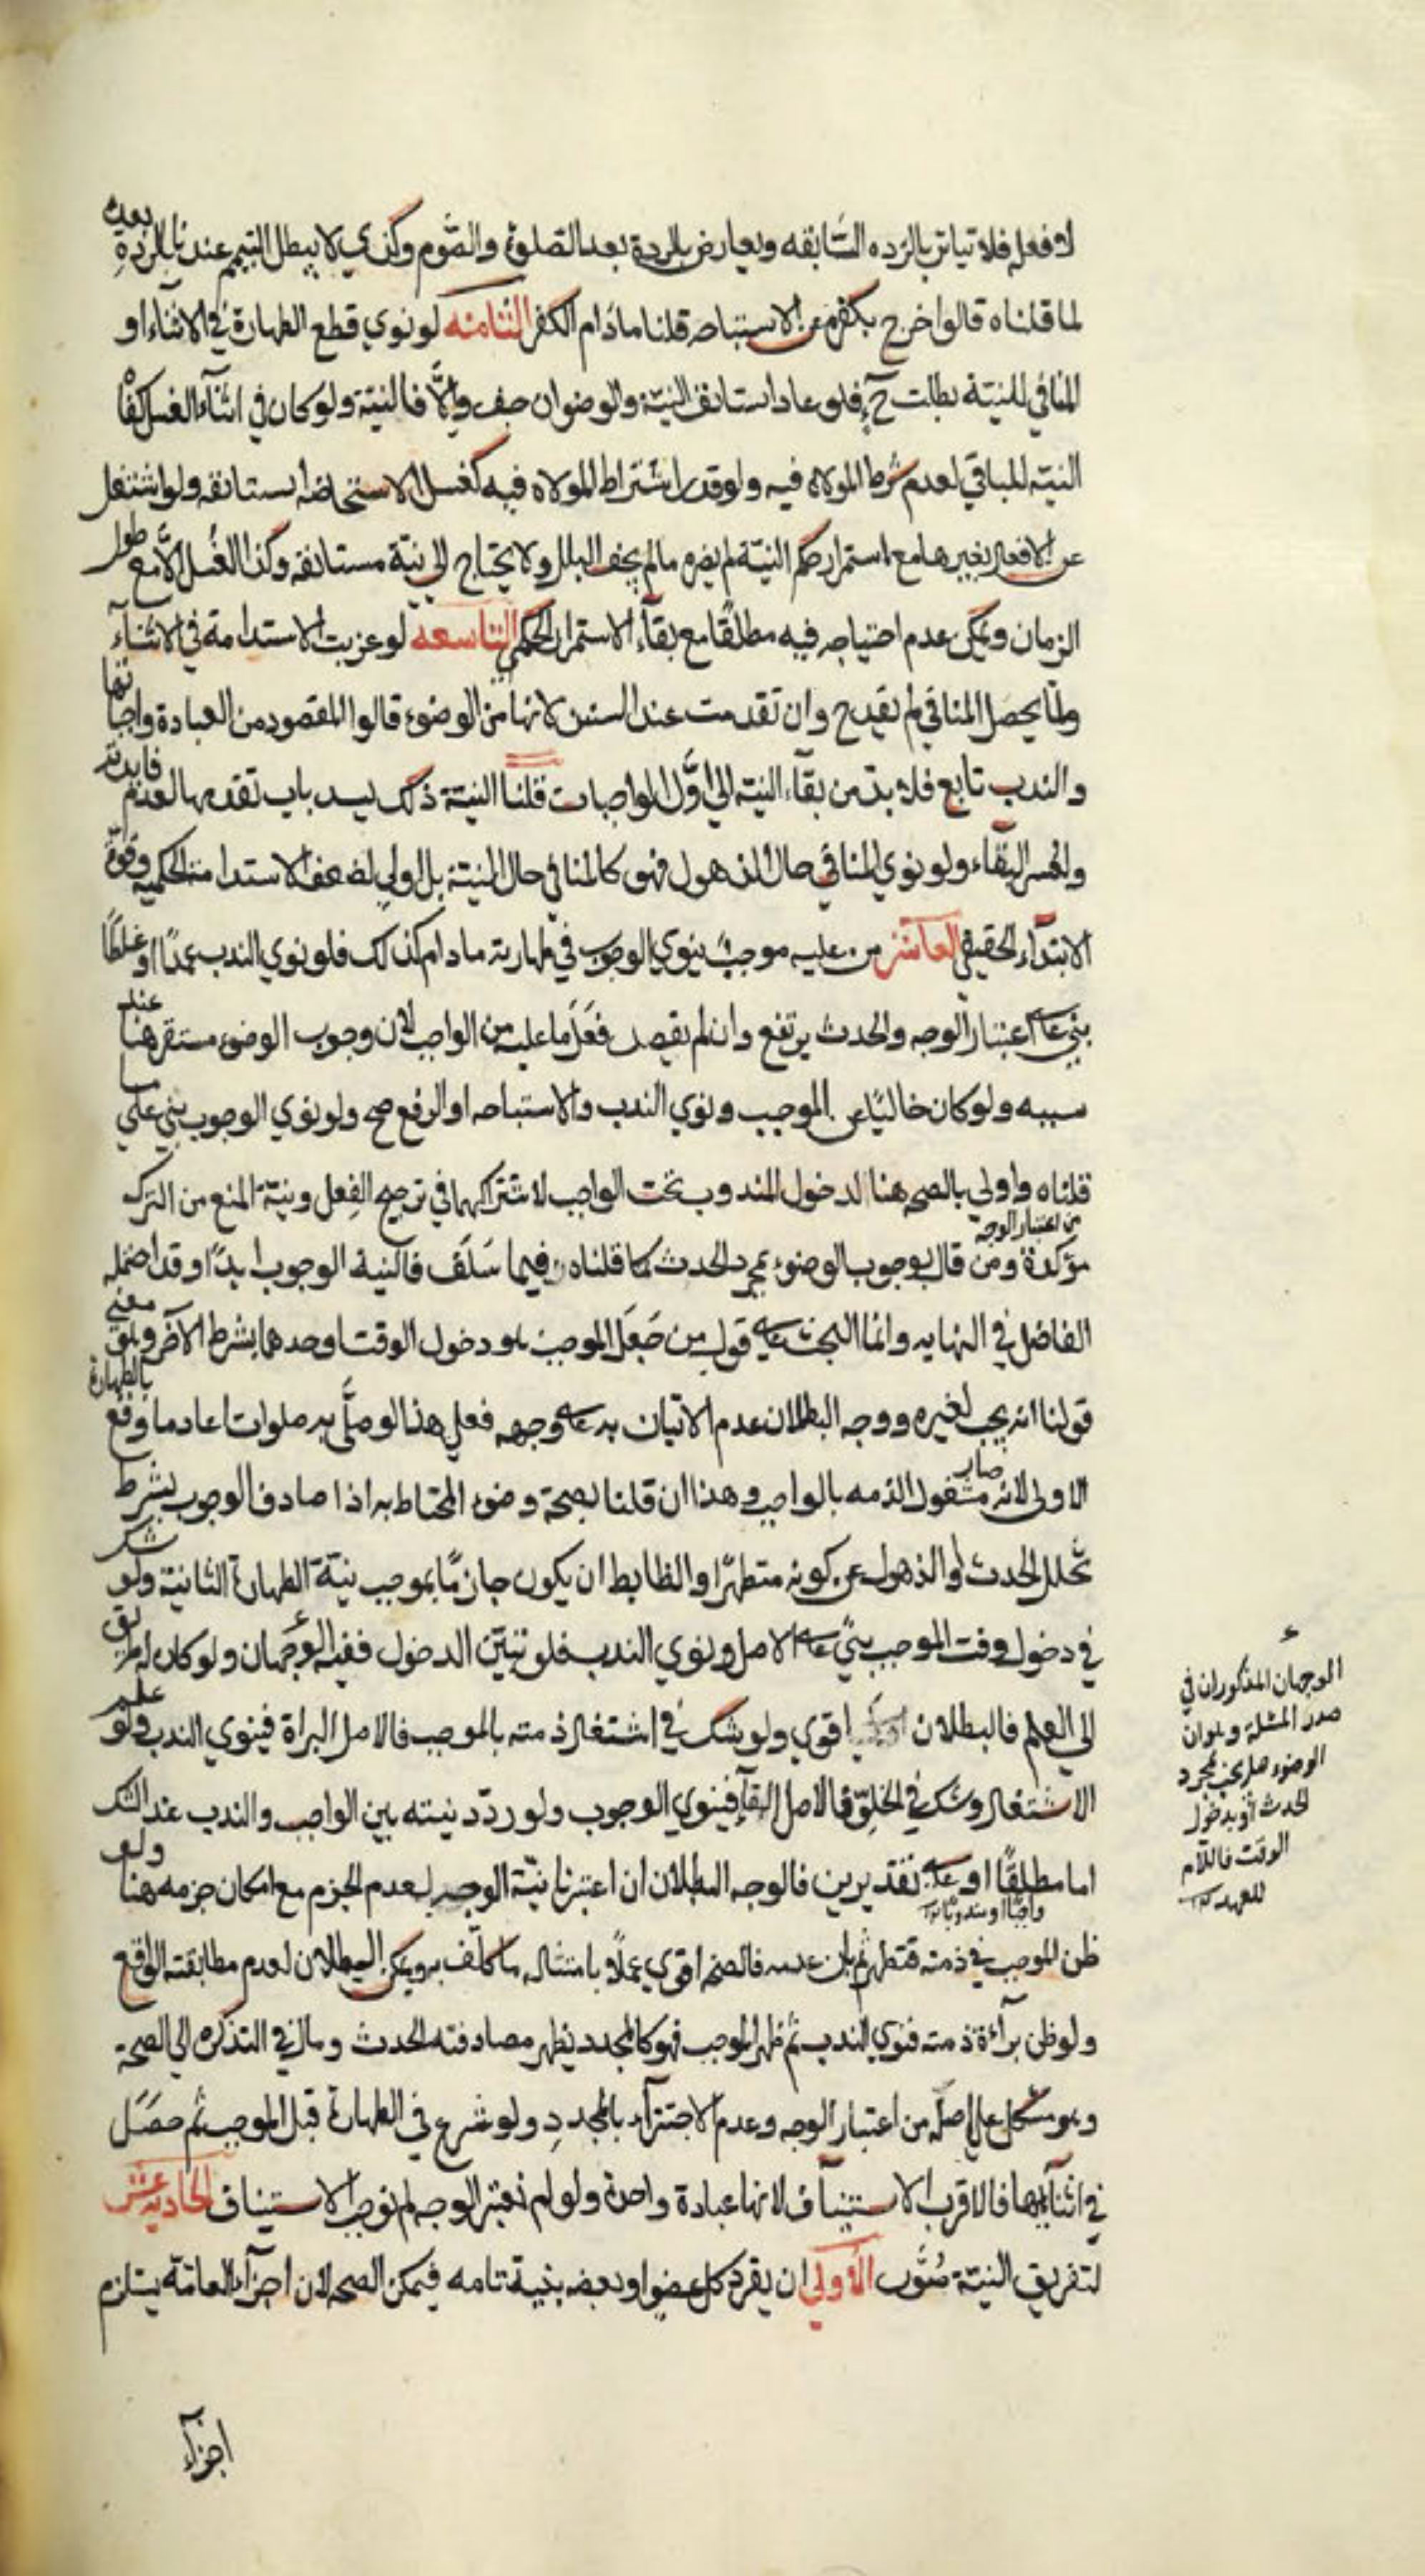 لا فعل فلا تياثر بالرده السّابقه ويعارض بالردة بعد الصلوة والصّوم وكذي لا يبطل التيمم عندنا بالردةِ بعده
لما قلناه قالوا خرج بكفره عن الاستباحه قلنا مادام الكفر الثامنه لو نوي قطع الطهارة في الاثناء او
المنافي للنيتة بطلت ح فلو عاد استانف النيّة والوضوان جف والّا فالنيّة ولو كان في اثناء الغسل كفاه
النيّه للباقي لعدم شرط الموالاه فيه ولو قدر اشتراط الموالاه فيه كغسل الاستحاضه استانفه ولو اشتغل
عن الافعال بغيرها مع استمرار حكم النيّة لم يضره مالم يجف البلل ولا يحتاج الي نيّة مستانفه وكذا الغُسل الّا مع طول
الزمان ويمكن عدم احتياجه فيه مطلقًا مع بقآء الاستمرار الحكمي التاسعه لو عزبت الاستدامة في الاثنآء
ولمّا يحصل المنافي لم يقدح وان تقدمت عند السنن لانها من الوضوء قالوا المقصود من العبادة واجباتها
والندب تابع فلا بدّ من بقآء النيّه الي اوّل الواجبات قلنا النيّة ذلك ليسد باب تقدمها لعدم فايدته
ولعسر البقآء ولو نوي المنافي حال الذهول فهو كالمنافي حال النيّة بل اولي لضعف الاستدامة الحكميه وقوة
الابتدآء الحقيقي العاشر من عليه موجبٌ ينوي الوجوب في طهارته مادام كذلك فلو نوي الندب عمدًا او غلطًا
بني علي اعتبار الوجه والحدث يرتفع وان لم يقصد فعَل ما عليه من الواجب لان وجوب الوضوء مستقر هنا عند
سببه ولو كان خاليًا عن الموجب ونوي الندب والاستباحه او الرفع صح ولو نوي الوجوب بني علي ما
قلناه واولي بالصحه هنا لدخول المندوب تحت الواجب لاشتراكهما في ترجيح الفِعل ونيّة المنع من الترك
من اعتبار الوجه
مؤكدة ومن قال بوجوب الوضوء بمجرد الحدث كما قلناه فيما سَلَف فالنية الوجوب ابدًا وقد احتمله
الفاضل في النهايه وانما البحث علي قول من جَعَل الموجب هو دخول الوقت او حدهما بشرط الاخر وهو معني
قولنا انه يجب لغيره ووجه البطلان عدم الاتيان به علي وجهه فعلي هذا لو صلّي به صلوات اعاد ما وقع بالطهارة
الاولي لانه صار مشغول الذمه بالواجب وهذا ان قلنا بصحة وضوء المحتاط به اذا صادف الوجوب بشرط
تخلل الحدث او الذهول عن كونه متطهرًا والظابط ان يكون جازمًا بموجب نيّة الطهارة الثانية ولو شك
في دخول وقت الموجب بني علي الاصل ونوي الندب فلو تبيّن الدخول ففيه الوَجهان ولو كان له طريق
الي العلم فالبطلان اقوي ولو شك في اشتغال ذمته بالموجب فالاصل البراة فينوي الندب ولو علم
الاشتغال وشك في الخلوّ فالاصل البقآء فينوي الوجوب ولو ردّد نيته بين الواجب والندب عند الشك
اما مطلقًا او علي تقديرين فالوجه البطلان ان اعتبرنا نيّة الوجه لعدم الجزم مع امكان جزمه هنا ولو
واجبًا او مندوبًا
ظن الموجب في ذمته فتطهر ثم بان عدمه فالصحه اقوي عملًا بامتثال ما كلّف به ويمكن البطلان لعدم مطابقته الواقع
ولو ظن برآءة ذمته فنوي الندب ثم ظهر الموجب فهو كالمجدد يظهر مصادفته الحدث ومال في التذكره الي الصحة
وهو مشكل علي اصلّه من اعتبار الوجه وعدم الاجتزآء بالمجددِ ولو شرع في الطهارة قبل الموجب ثم حصَل
في اثنآئها فالاقرب الاستيناف لانها عبادة واحدة ولو لم نعتبر الوجه لم نوجب الاستيناف الحادية عشر
لتفريق النيّة صُوَر الاولي ان يفرد كل عضو او بعضه بنية تامه فيمكن الصحه لان اجزآء العامّة يستلزم
اجزآء
الوجهان المذكوران في
صدر المسئلة وهو ان
الوضوء هل يجب بمجرد
الحدث او بدخول
الوقت فاللام
للعهد